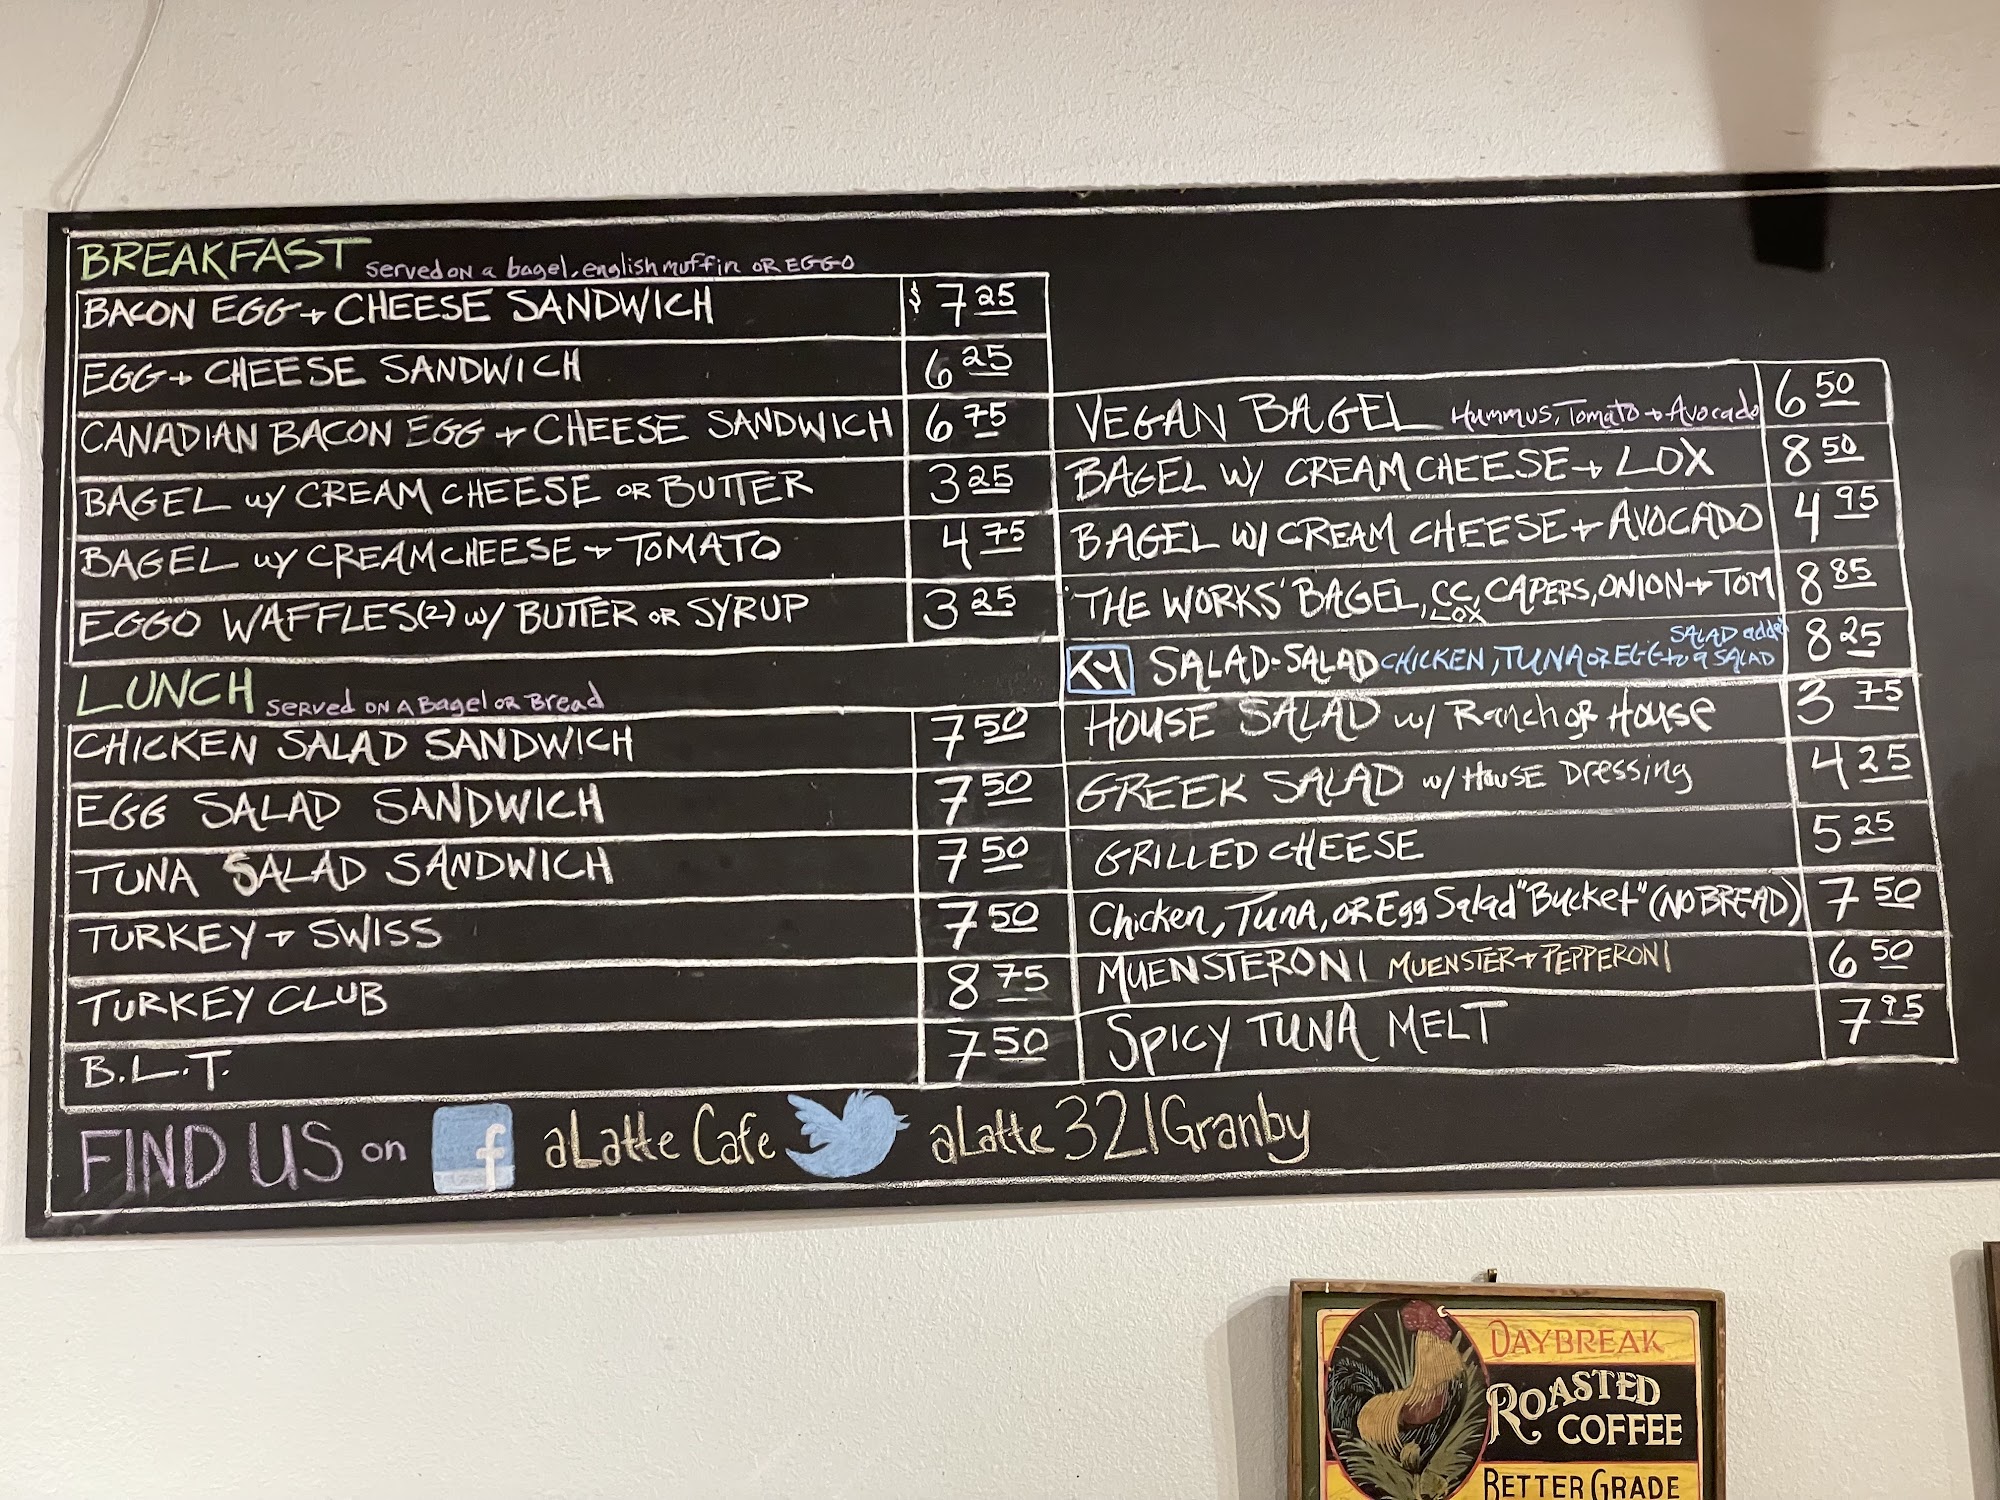 BREAKFAST served on a bagel, english muffin or EGGO
BACON EGG + CHEESE SANDWICH $ 7 25
EGG + CHEESE SANDWICH 6 25
CANADIAN BACON EGG + CHEESE SANDWICH 6 75
BAGEL w/ CREAM CHEESE OR BUTTER 3 25
BAGEL w/ CREAM CHEESE + TOMATO 4 75
EGGO WAFFLES (2) w/ BUTTER OR SYRUP 3 25
LUNCH Served ON A Bagel OR Bread
CHICKEN SALAD SANDWICH 7 50
EGG SALAD SANDWICH 7 50
TUNA SALAD SANDWICH 7 50
TURKEY + SWISS 7 50
TURKEY CLUB 8 75
B.L.T. 7 50
VEGAN BAGEL Hummus, Tomato + Avocado 6 50
BAGEL W/ CREAM CHEESE + LOX 8 50
BAGEL W/ CREAM CHEESE + AVOCADO 4 95
'THE WORKS' BAGEL, CC, CAPERS, ONION + TOM 8 85
LOX
SALAD added
SALAD-SALAD CHICKEN, TUNA OR EGG to a SALAD 8 25
HOUSE SALAD w/ Ranch OR House 3 75
GREEK SALAD w/ House Dressing 4 25
GRILLED CHEESE 5 25
Chicken, Tuna, OR Egg Salad "Bucket" (NO BREAD) 7 50
MUENSTERONI MUENSTER + PEPPERONI 6 50
SPICY TUNA MELT 7 95
FIND US on f aLatte Cafe aLatte321Granby
DAYBREAK
ROASTED
COFFEE
BETTER GRADE